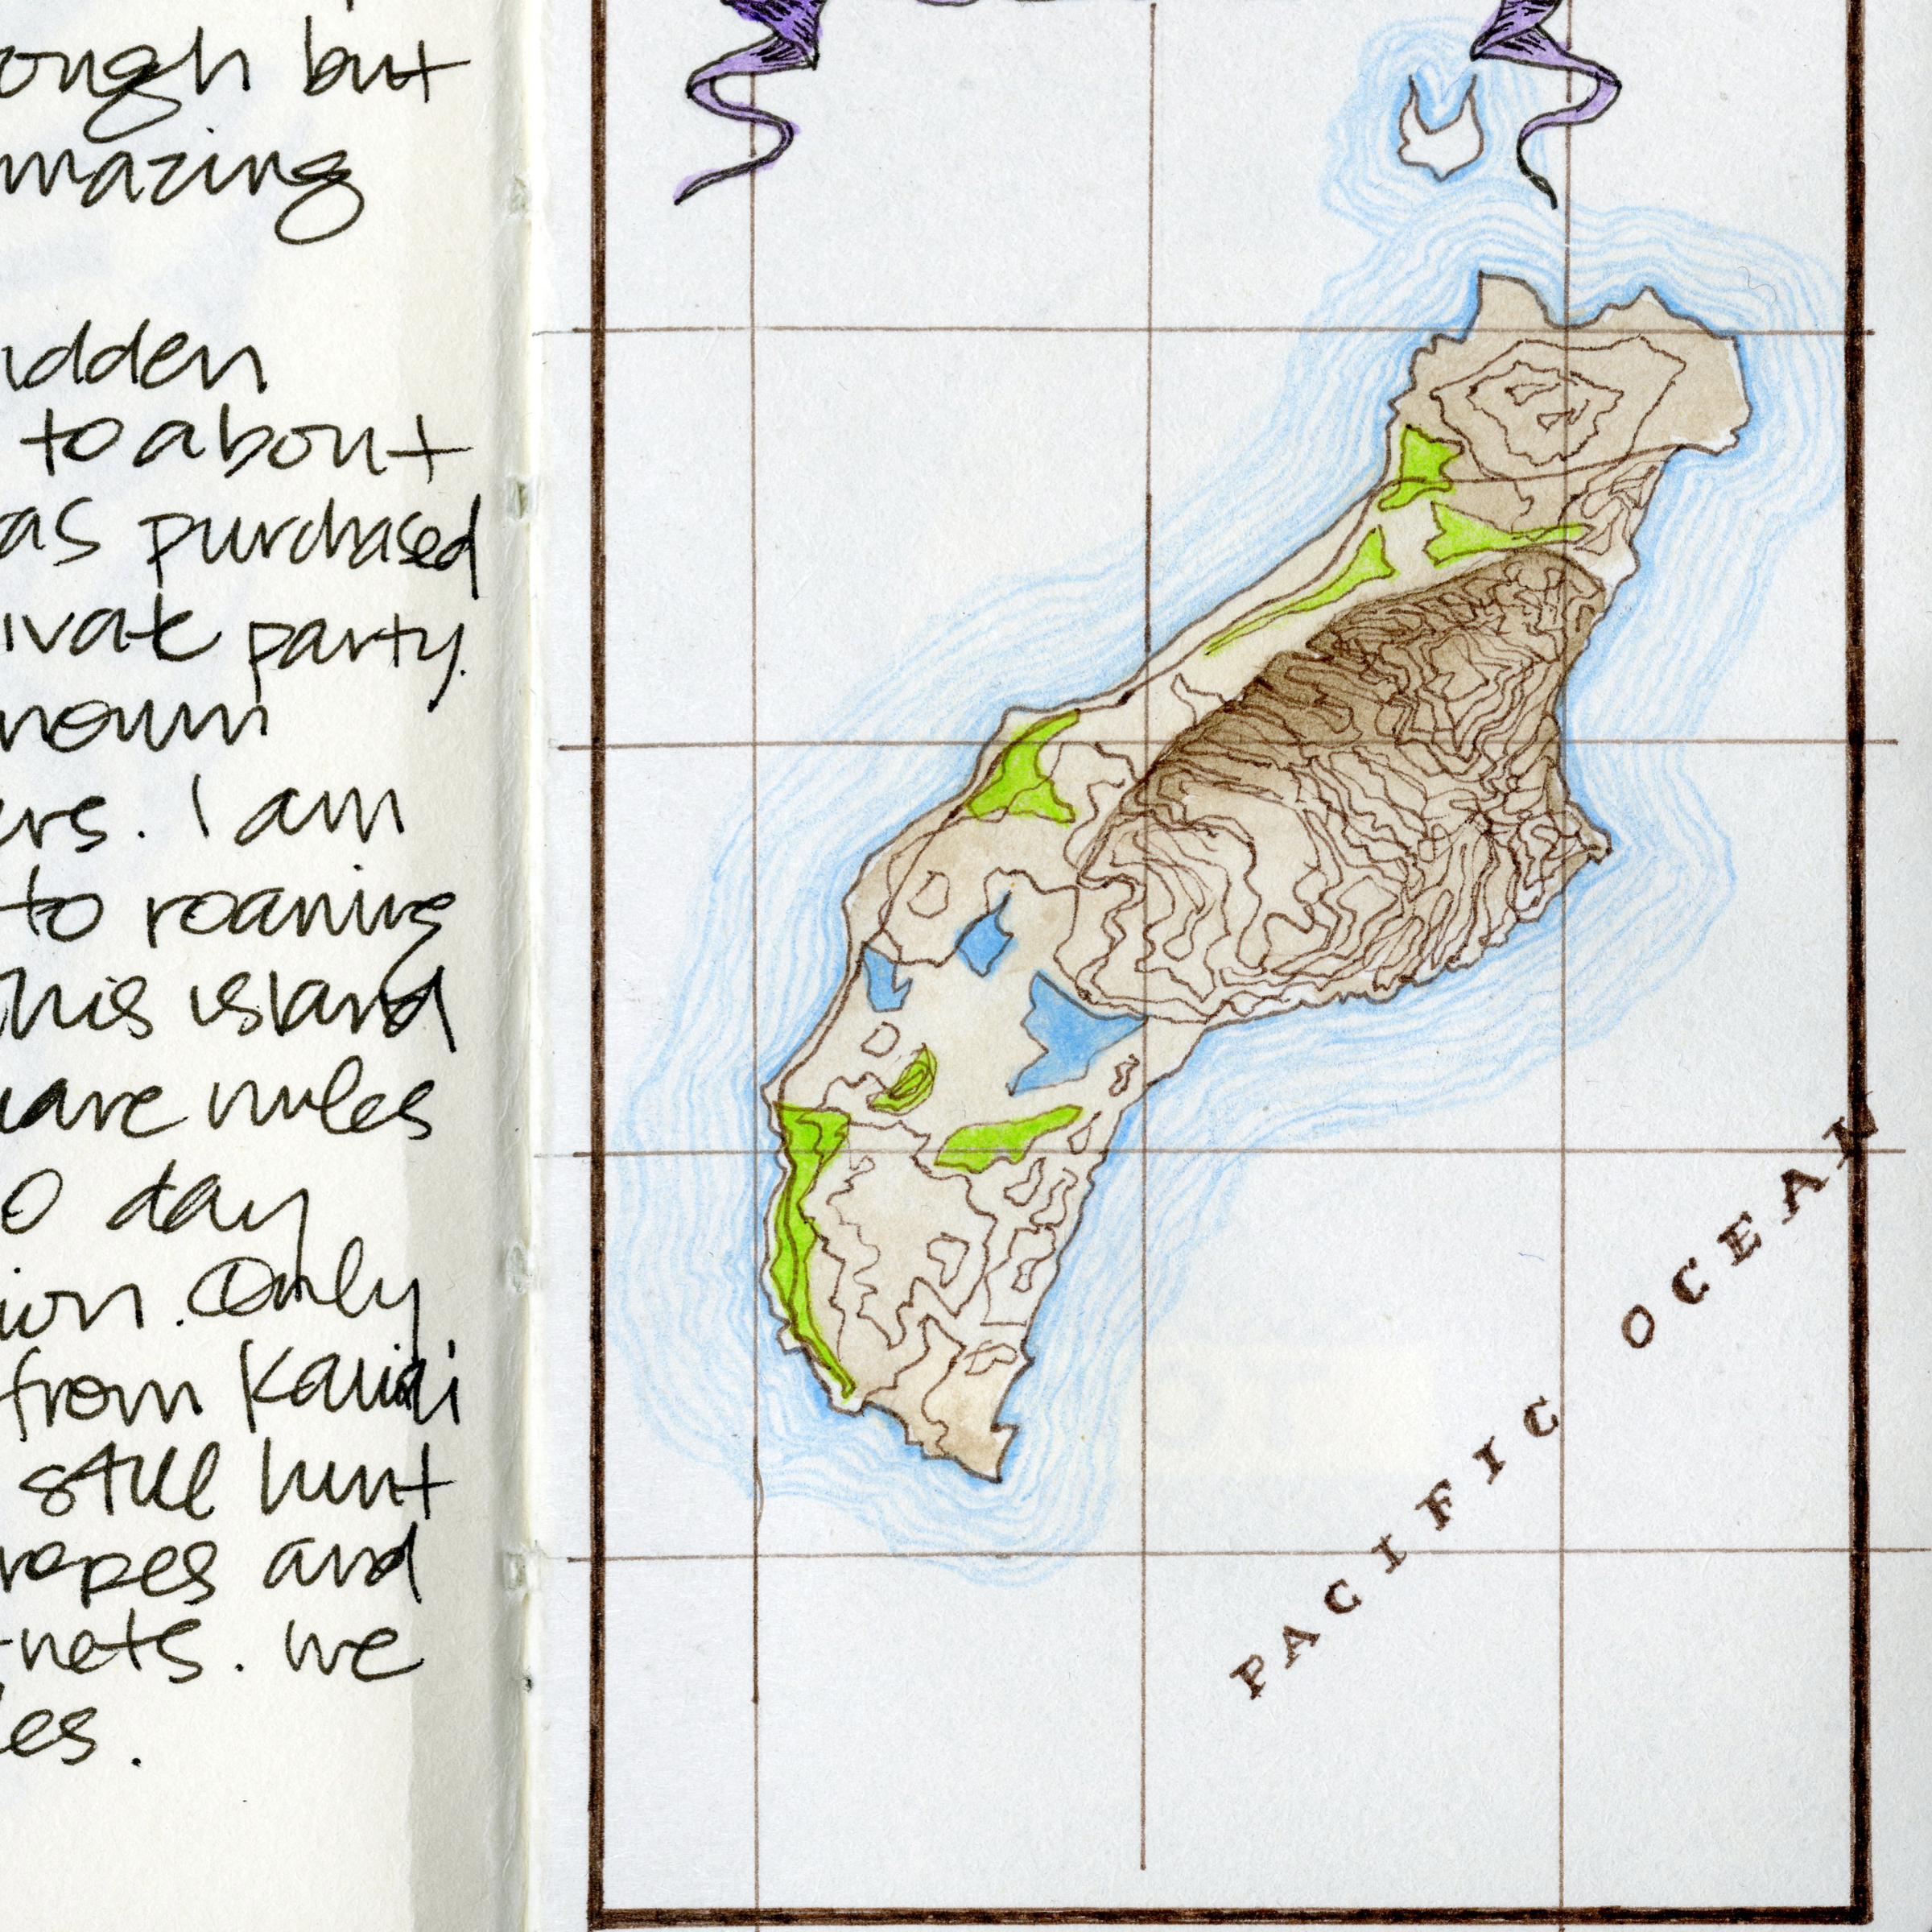 ough but
mazing
idden
to about
as purchased
ivate party.
nown
ers. I am
to roaning
this island
uare miles
0 day
ion. Only
from Kauai
still hunt
ropes and
-nets. we
les.
PACIFIC OCEAN